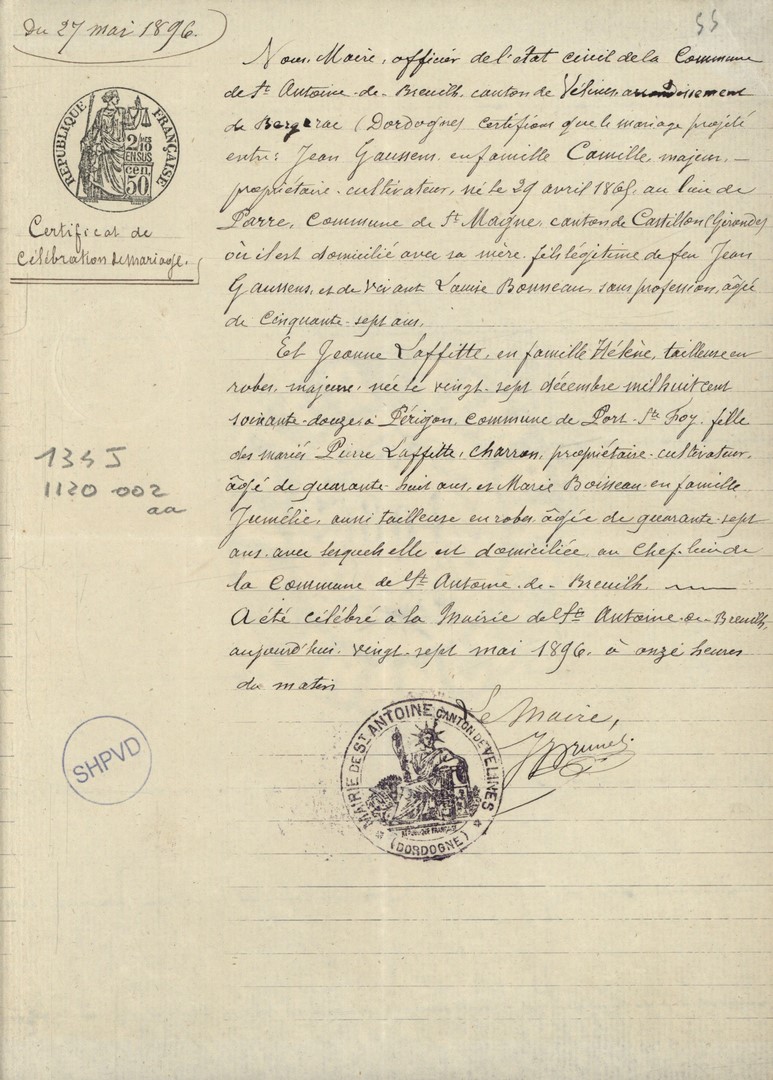 du 27 mai 1896.
55
RÉPUBLIQUE FRANÇAISE
2/10 EN SUS
50 cen.
Certificat de
célébration de mariage.
Nous, Maire, officier de l'état civil de la Commune
de St Antoine-de-Breuilh, canton de Vélines arrondissement
de Bergerac (Dordogne) certifions que le mariage projeté
entre: Jean Gaussens, en famille Camille, majeur, –
propriétaire-cultivateur, né le 29 avril 1865, au lieu de
Parre, commune de St Magne, canton de Castillon (Gironde)
où il est domicilié avec sa mère, fils légitime de feu Jean
Gaussens, et de vivant Louise Bonneau, sans profession, âgée
de cinquante-sept ans.
Et Jeanne Laffitte, en famille Hélène, tailleuse en
robes, majeure, née le vingt-sept décembre mil huit cent
soixante-douze, à Périgon, commune de Port-Ste Foy, fille
des mariés Pierre Laffitte, charron, propriétaire-cultivateur,
âgé de quarante-huit ans, et Marie Boisseau, en famille
Jumélie, aussi tailleuse en robes, âgée de quarante-sept
ans, avec lesquels elle est domiciliée, au chef-lieu de
la commune de St Antoine-de-Breuilh.
A été célébré à la Mairie de St Antoine-de-Breuilh,
aujourd'hui, vingt-sept mai 1896, à onze heures
du matin
Le Maire,
Brunet
134 J
1120 002
aa
SHPVD
MAIRIE DE ST ANTOINE CANTON DE VELINES
RÉPUBLIQUE FRANÇAISE
(DORDOGNE)